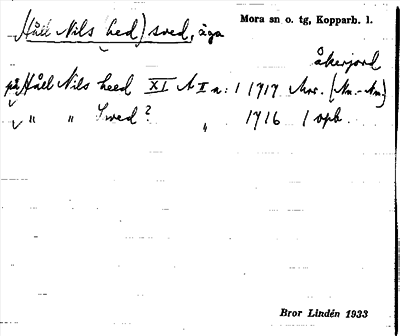 Håll Nils hed) sved, äga
Mora sn o. tg, Kopparb. l.
åkerjord
på Håll Nils heed XI A II n: 1 1717 Mor. (Nn.-Nm.)
" " Swed? " 1716 1 opb.
Bror Lindén 1933